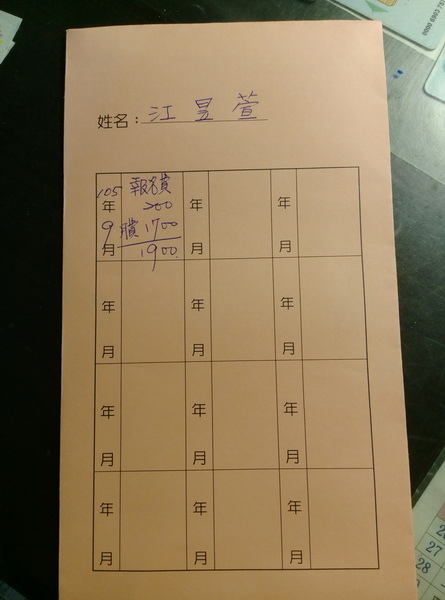 姓名：江昱萱
105年9月 報名費
200
費 1700
1900
年 月
年 月
年 月
年 月
年 月
年 月
年 月
年 月
年 月
年 月
年 月
27
28